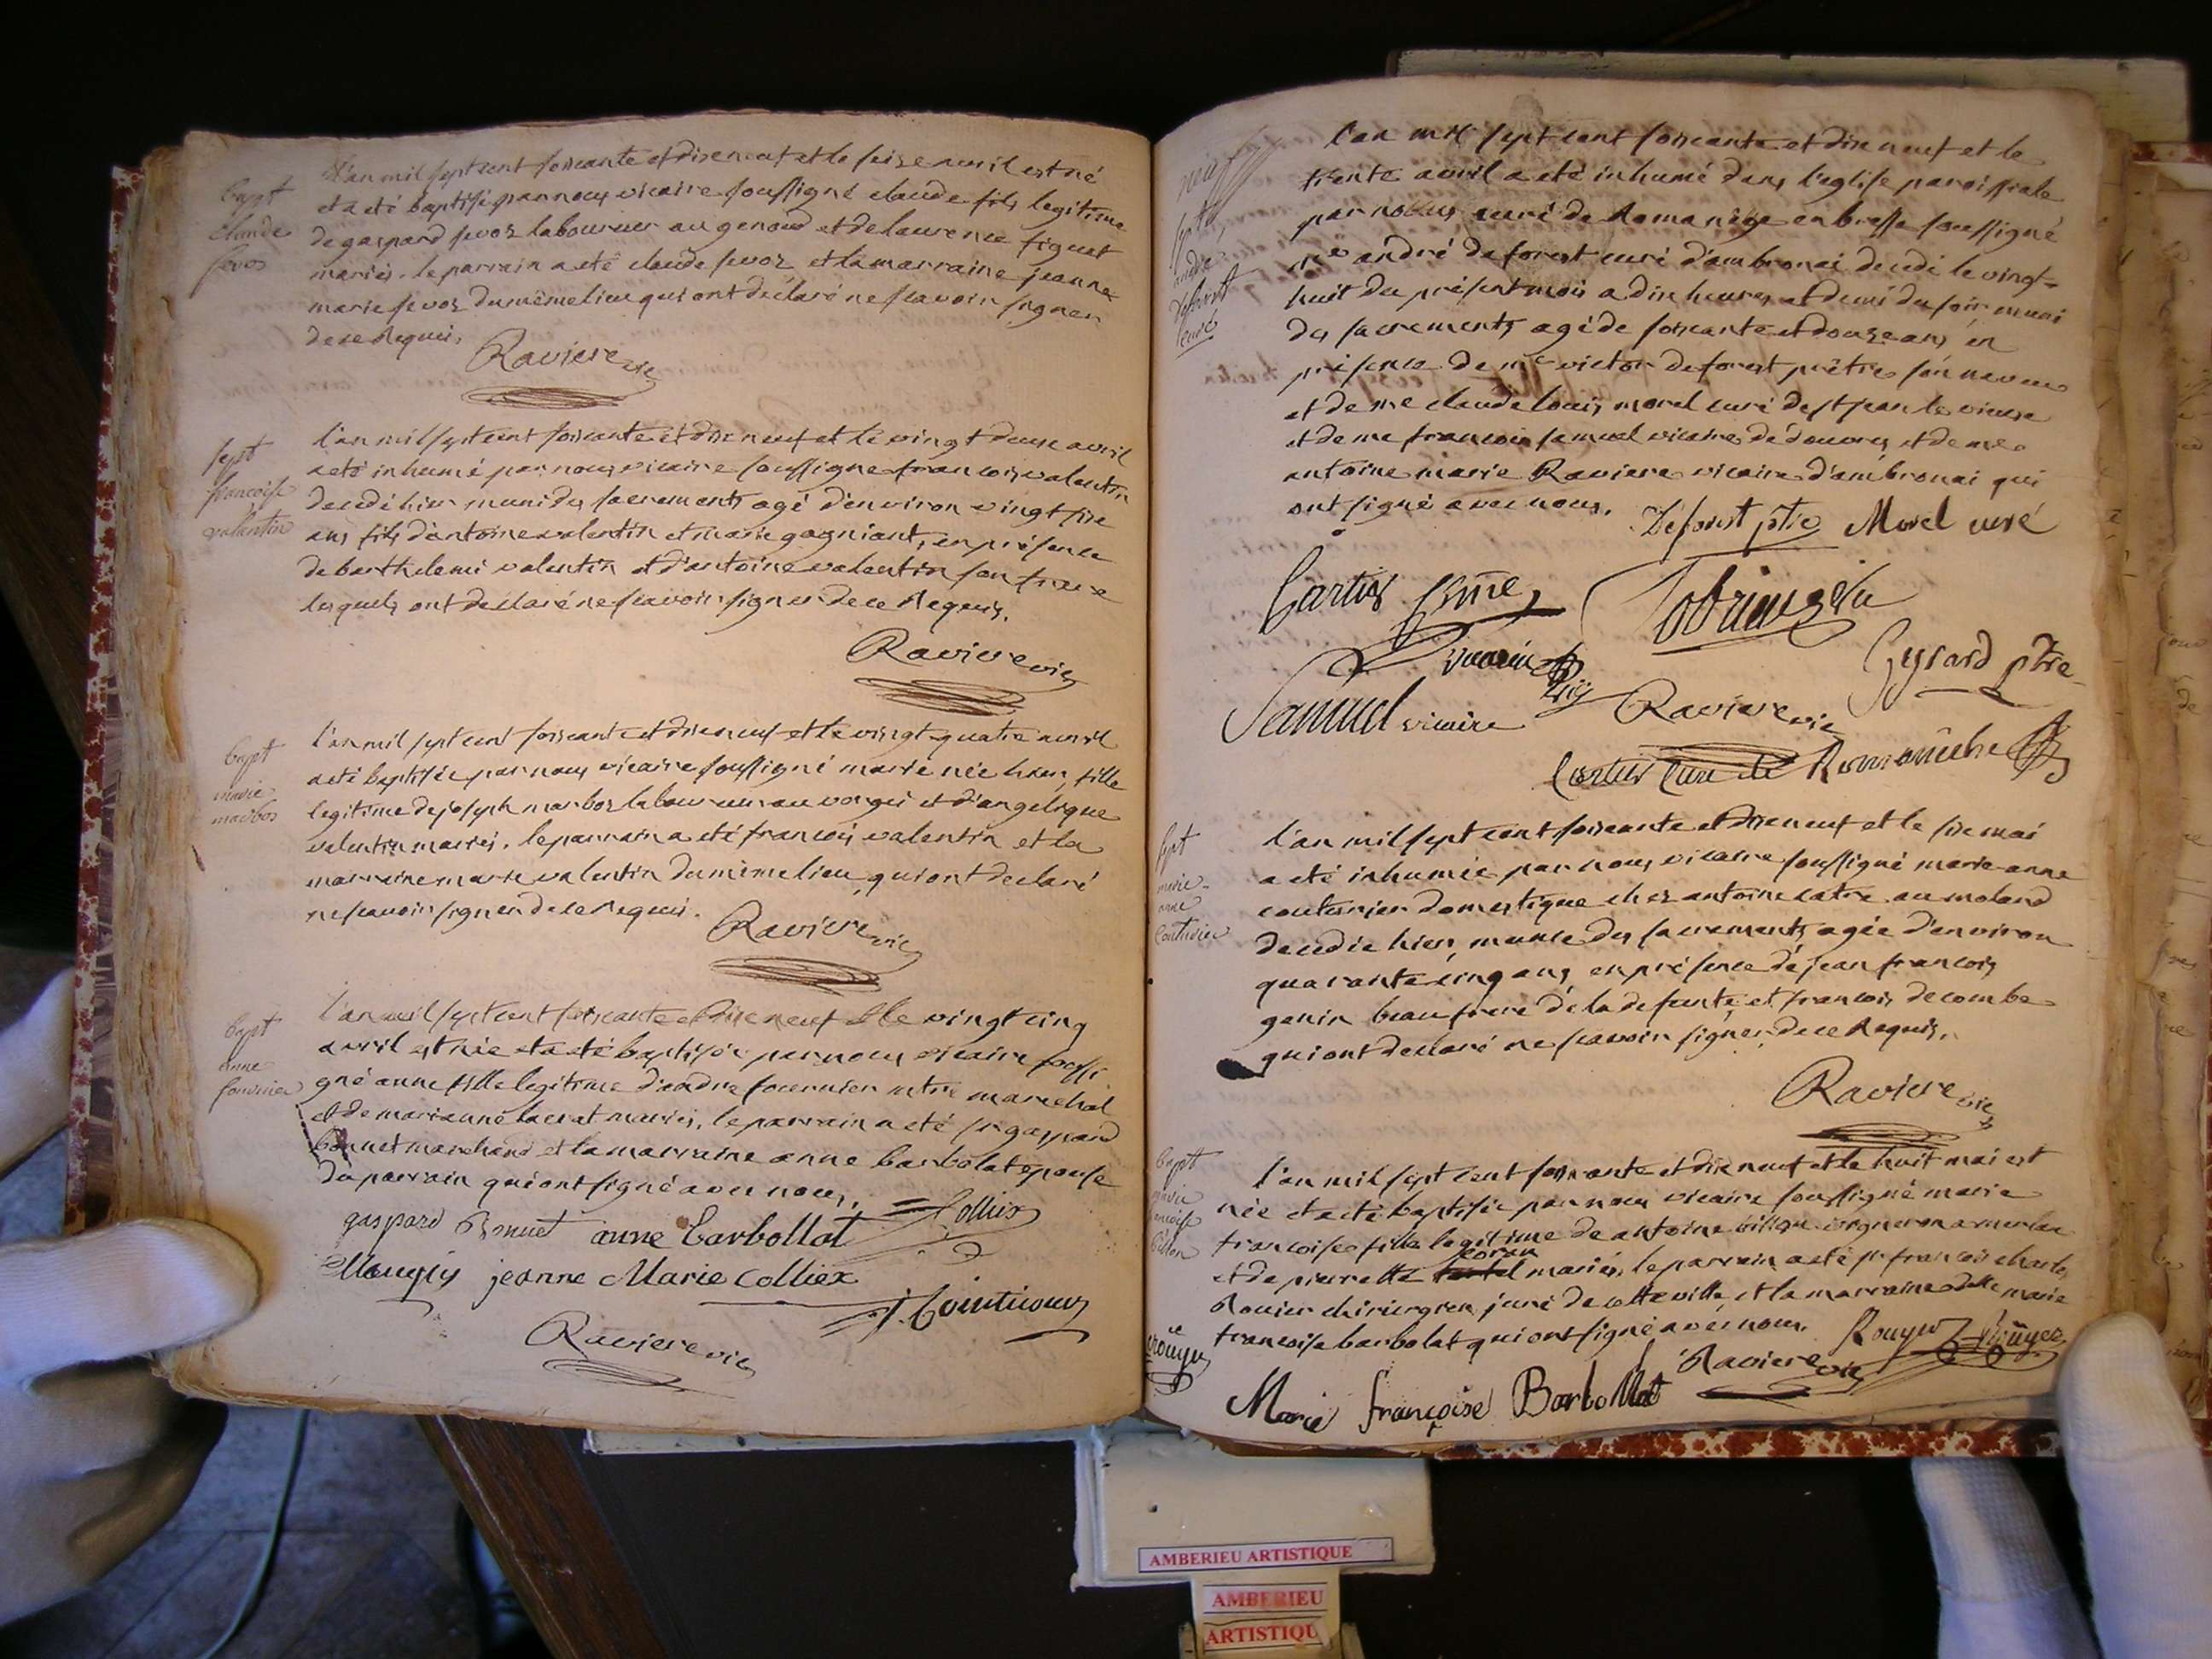 bapt
claude
sevoz
L'an mil sept cent soixante et dixneuf et le seize avril est né
et a eté baptisé par nous vicaire soussigné claude fils legitime
de gaspard sevoz laboureur au genoud et de laurence figuet
mariés. le parrain a eté claude sevoz et la marraine jeanne
marie sevoz du même lieu qui ont déclaré ne scavoir signer
de ce requis.
Raviere vic
sept
francoise
valentin
l'an mil sept cent soixante et dix neuf et le vingt deux avril
a eté inhumé par nous vicaire soussigné francois valentin
decedé hier muni des sacrements agé d'environ vingt six
ans fils d'antoine valentin et marie gagniant, en présence
de barthelemi valentin et d'antoine valentin son frere
lesquels ont declaré ne scavoir signer de ce requis.
Raviere vic
bapt
marie
marbos
l'an mil sept cent soixante et dixneuf et le vingt quatre avril
a eté baptisée par nous vicaire soussigné marie née hier, fille
legitime de joseph marboz laboureur au verger et d'angelique
valentin mariés. le parrain a eté francois valentin et la
marraine marie valentin du même lieu, qui ont declaré
ne scavoir signer de ce requis.
Raviere vic
bapt
anne
fournier
l'an mil sept cent soixante et dix neuf et le vingt cinq
avril est née et a eté baptisée par nous vicaire soussi
gné anne fille legitime d'andre fournier mtre marechal
et de marianne mariés, le parrain a eté sr gaspard
bonnet marchand et la marraine anne barbolat epouse
du parrain qui ont signé avec nous.
Colliex
gaspard Bonnet anne barbollat
Mougey jeanne Marie Colliex
J. Cointicourz
Raviere vic
sept
andré
deforest
curé
l'an mil sept cent soixante et dix neuf et le
trente avril a eté inhumé dans l'eglise paroissiale
par nous curé de Romanêge en bresse soussigné
me andré deforest curé d'ambronai decedé le vingt-
huit du présent mois a dix heures et demi du soir muni
des sacrements agé de soixante et douze ans en
présence de me victor deforest prêtre son neveu
et de me claude louis morel curé de st jean le vieux
et de me francois samuel vicaire de douvres et de me
antoine marie Raviere vicaire d'ambronai qui
ont signé avec nous.
Deforest ptre Morel curé
Gyrard ptre
Samuel vicaire
Raviere vic
Cortus Cure de Romanêche
sept
marie-
anne
Couturier
l'an mil sept cent soixante et dix neuf et le six mai
a eté inhumée par nous vicaire soussigné marie-anne
couturier domestique chez antoine catre au moland
decedée hier, munie des sacrements agée d'environ
quarante cinq ans, en présence de jean francois
genin beau frere de la defunte et francois decombe
qui ont declaré ne scavoir signer de ce Requis.
Raviere vic
bapt
marie
francoise
billon
l'an mil sept cent soixante et dix neuf et le huit mai est
née et a eté baptisée par nous vicaire soussigné marie
francoise fille legitime de antoine billon vigneron
et de pierrette mariés, le parrain a eté sr francois charles
Rouier chirurgien juré de cette ville, et la marraine delle marie
francoise barbolat qui ont signé avec nous.
Rouyer Rouyer
rouyer
Raviere vic
Marie françoise Barbollat
AMBERIEU ARTISTIQUE
AMBERIEU
ARTISTIQU